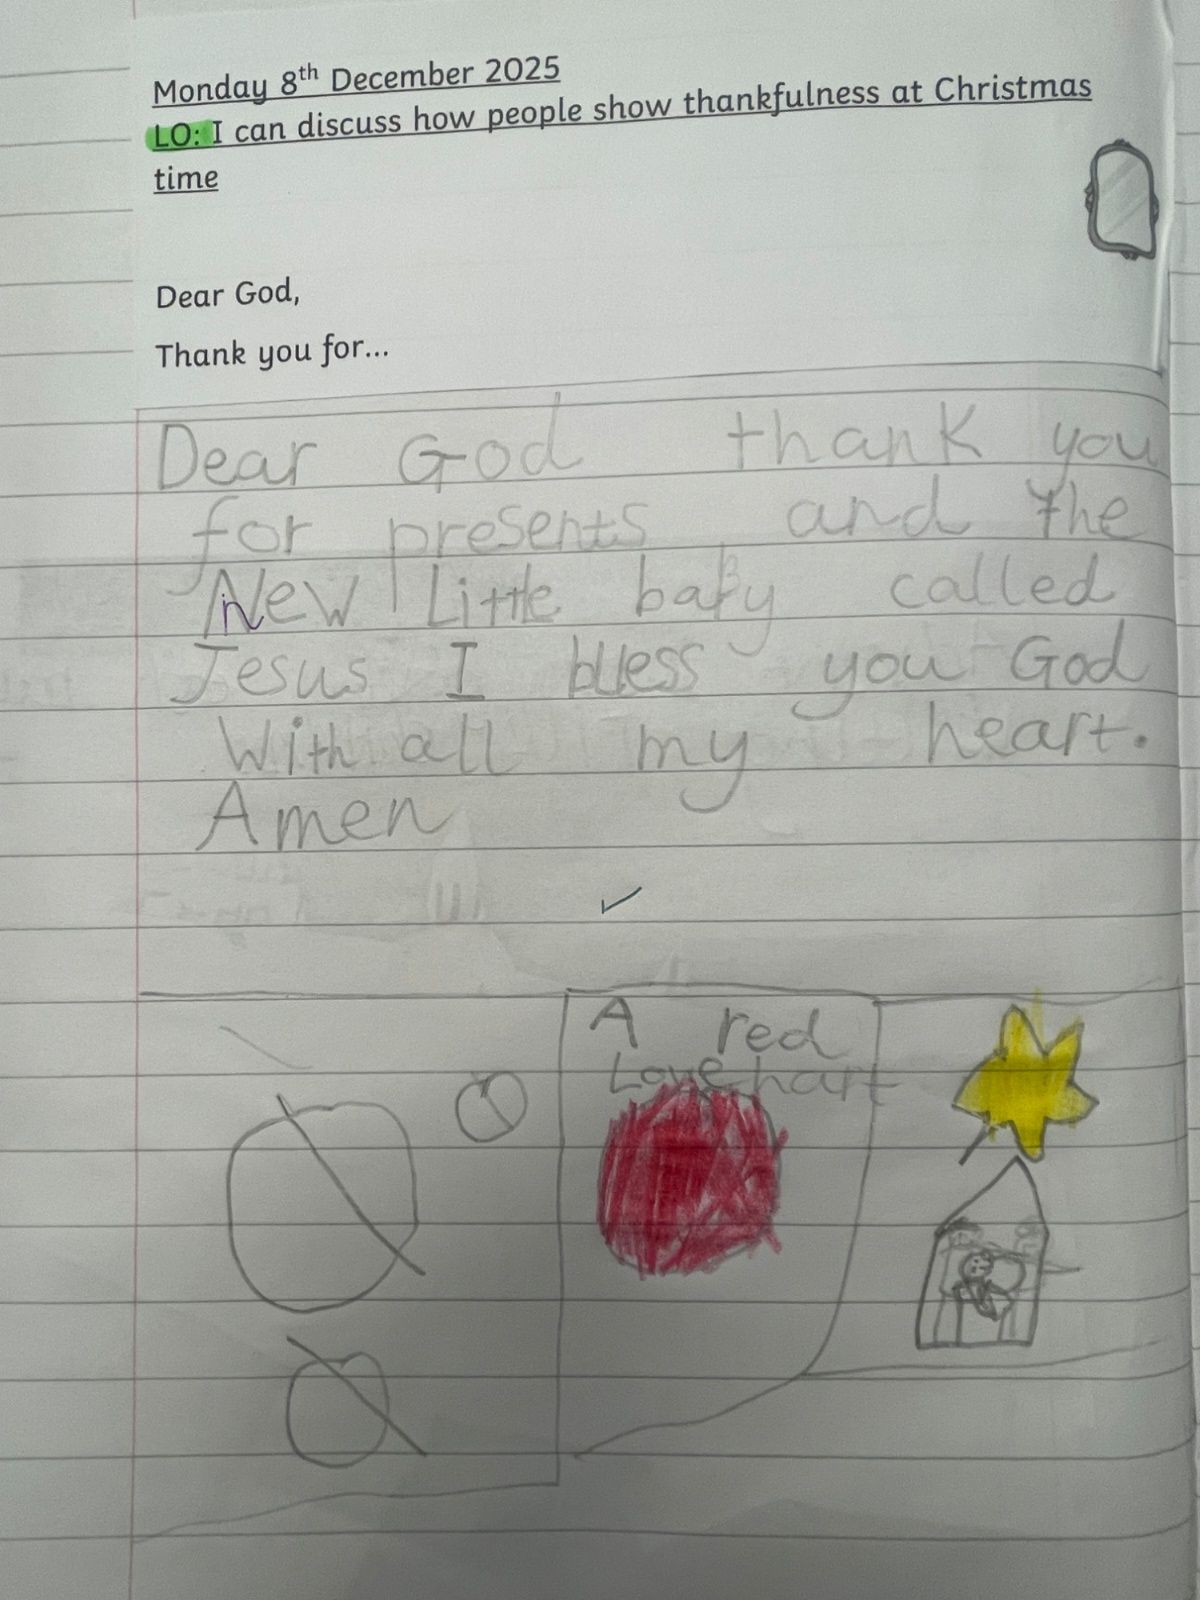 Monday 8th December 2025
LO: I can discuss how people show thankfulness at Christmas
time
Dear God,
Thank you for...
Dear God thank you
for presents and the
New Little baby called
Jesus I bless you God
With all my heart.
Amen
A red
Love hart